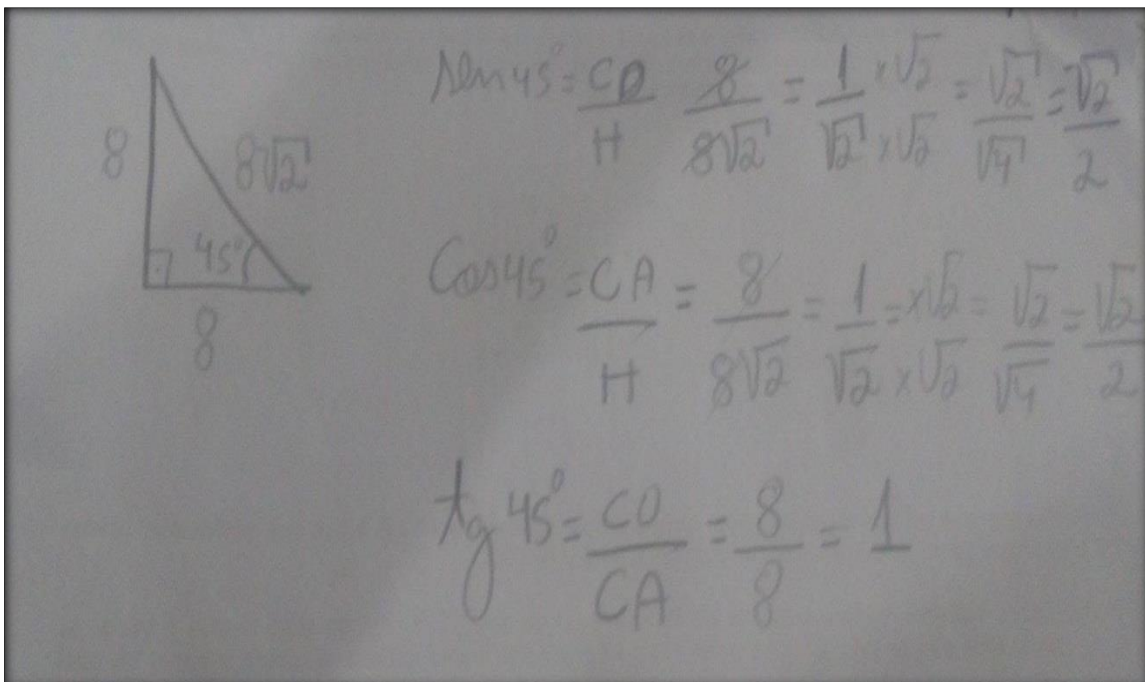 8
8√2
45°
8
sen 45° = CO/H 8/8√2 = 1/√2 ×√2/×√2 = √2/√4 = √2/2
Cos 45° = CA/H = 8/8√2 = 1/√2 = ×√2/×√2 = √2/√4 = √2/2
tg 45° = CO/CA = 8/8 = 1